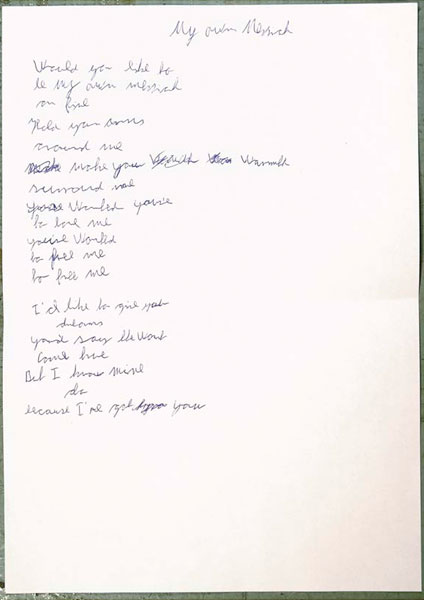 My own Messiah
Would you like to
be My own messiah
on fire
Hold your arms
around me
make your Warmth
surround me
Wanted you've
to love me
you've Wanted
to free me
to free me
I'd like to give
dreams
you'd say Won't
Come true
But I know mine
do
because I've got you